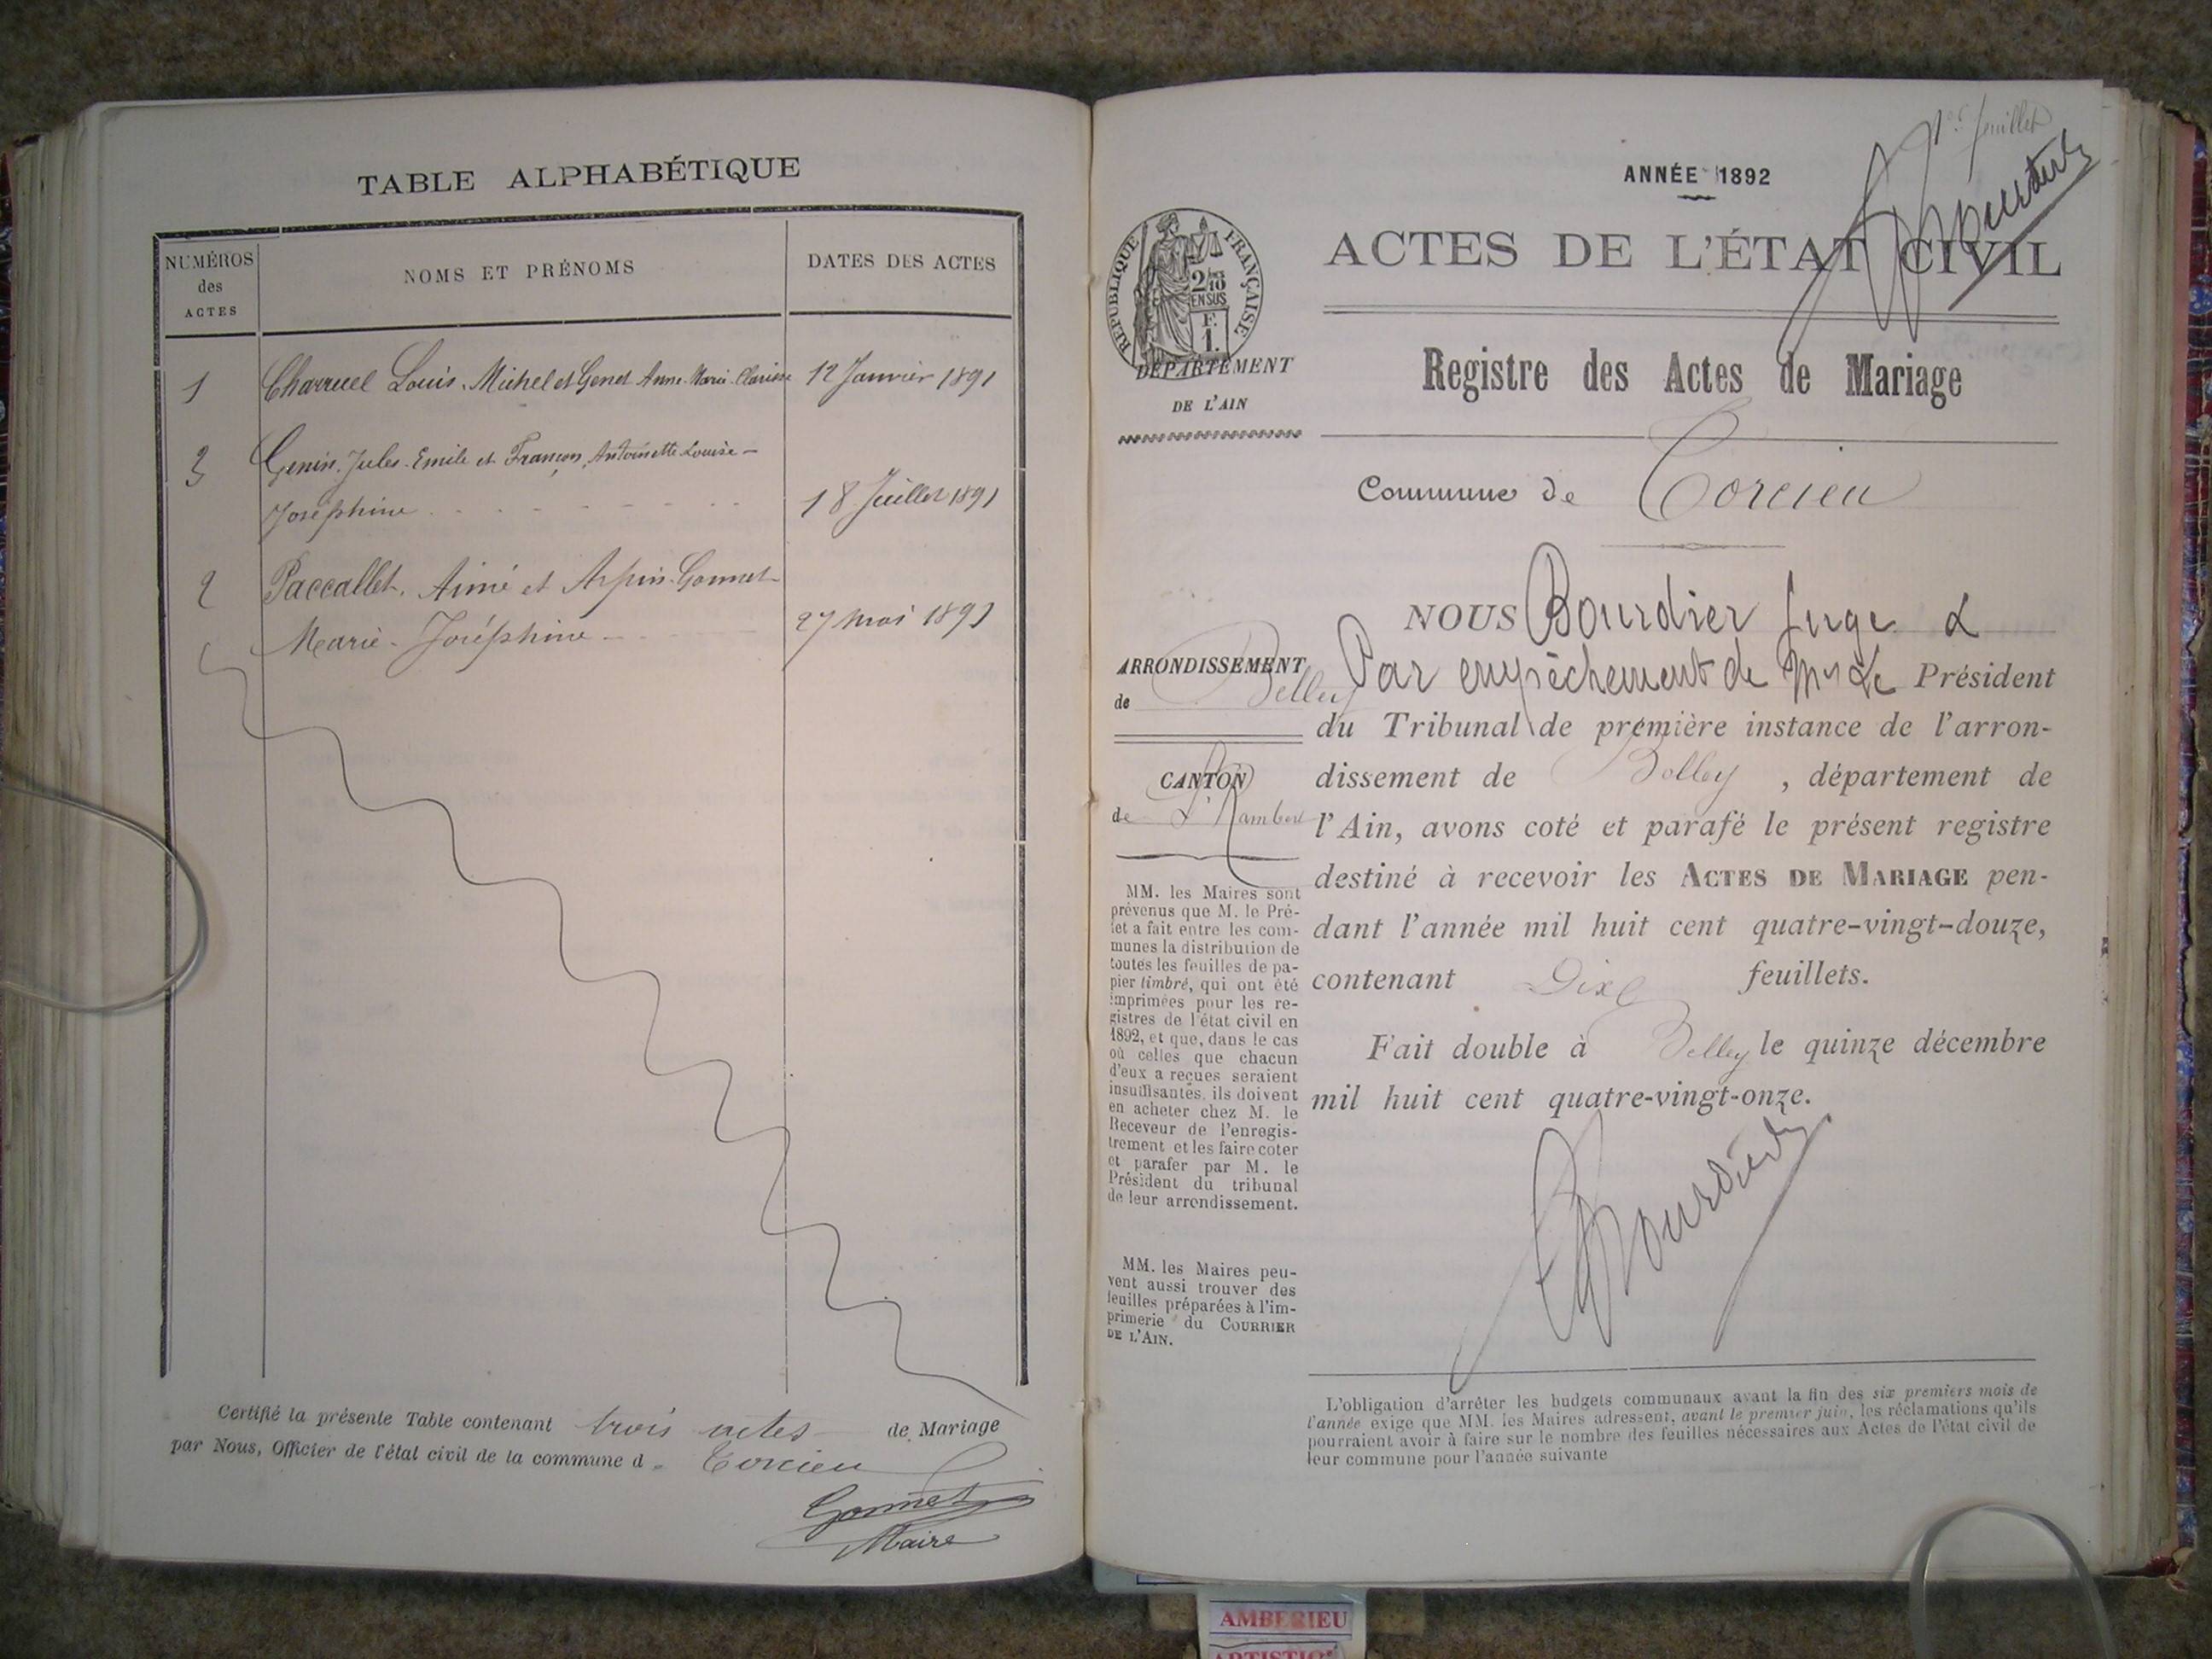 TABLE ALPHABÉTIQUE
NUMÉROS
des
ACTES
NOMS ET PRÉNOMS
DATES DES ACTES
1 Charruel Louis-Michel et Genet Anne-Marie-Clarisse 12 Janvier 1891
3 Genin Jules-Emile et Françon Antoinette Louise-
Joséphine 18 Juillet 1891
2 Paccallet Aimé et Arpin-Gonnet
Marie-Joséphine 27 mai 1891
Certifié la présente Table contenant trois actes de Mariage
par Nous, Officier de l'état civil de la commune d. Torcieu
Gonnet
Maire
1er feuillet
Bourdier
ANNÉE 1892
RÉPUBLIQUE FRANÇAISE
2/10
EN SUS
F.
1.
DÉPARTEMENT
DE L'AIN
ACTES DE L'ÉTAT CIVIL
Registre des Actes de Mariage
Commune de Torcieu
ARRONDISSEMENT
de Belley
CANTON
de St Rambert
MM. les Maires sont
prévenus que M. le Pré-
fet a fait entre les com-
munes la distribution de
toutes les feuilles de pa-
pier timbré, qui ont été
imprimées pour les re-
gistres de l'état civil en
1892, et que, dans le cas
où celles que chacun
d'eux a reçues seraient
insuffisantes, ils doivent
en acheter chez M. le
Receveur de l'enregis-
trement et les faire coter
et parafer par M. le
Président du tribunal
de leur arrondissement.
MM. les Maires peu-
vent aussi trouver des
feuilles préparées à l'im-
primerie du COURRIER
DE L'AIN.
NOUS Bourdier Juge
Par empêchement de Mr Le Président
du Tribunal de première instance de l'arron-
dissement de Belley, département de
l'Ain, avons coté et parafé le présent registre
destiné à recevoir les ACTES DE MARIAGE pen-
dant l'année mil huit cent quatre-vingt-douze,
contenant Dix feuillets.
Fait double à Belley le quinze décembre
mil huit cent quatre-vingt-onze.
Bourdier
L'obligation d'arrêter les budgets communaux avant la fin des six premiers mois de
l'année exige que MM. les Maires adressent, avant le premier juin, les réclamations qu'ils
pourraient avoir à faire sur le nombre des feuilles nécessaires aux Actes de l'état civil de
leur commune pour l'année suivante
AMBERIEU